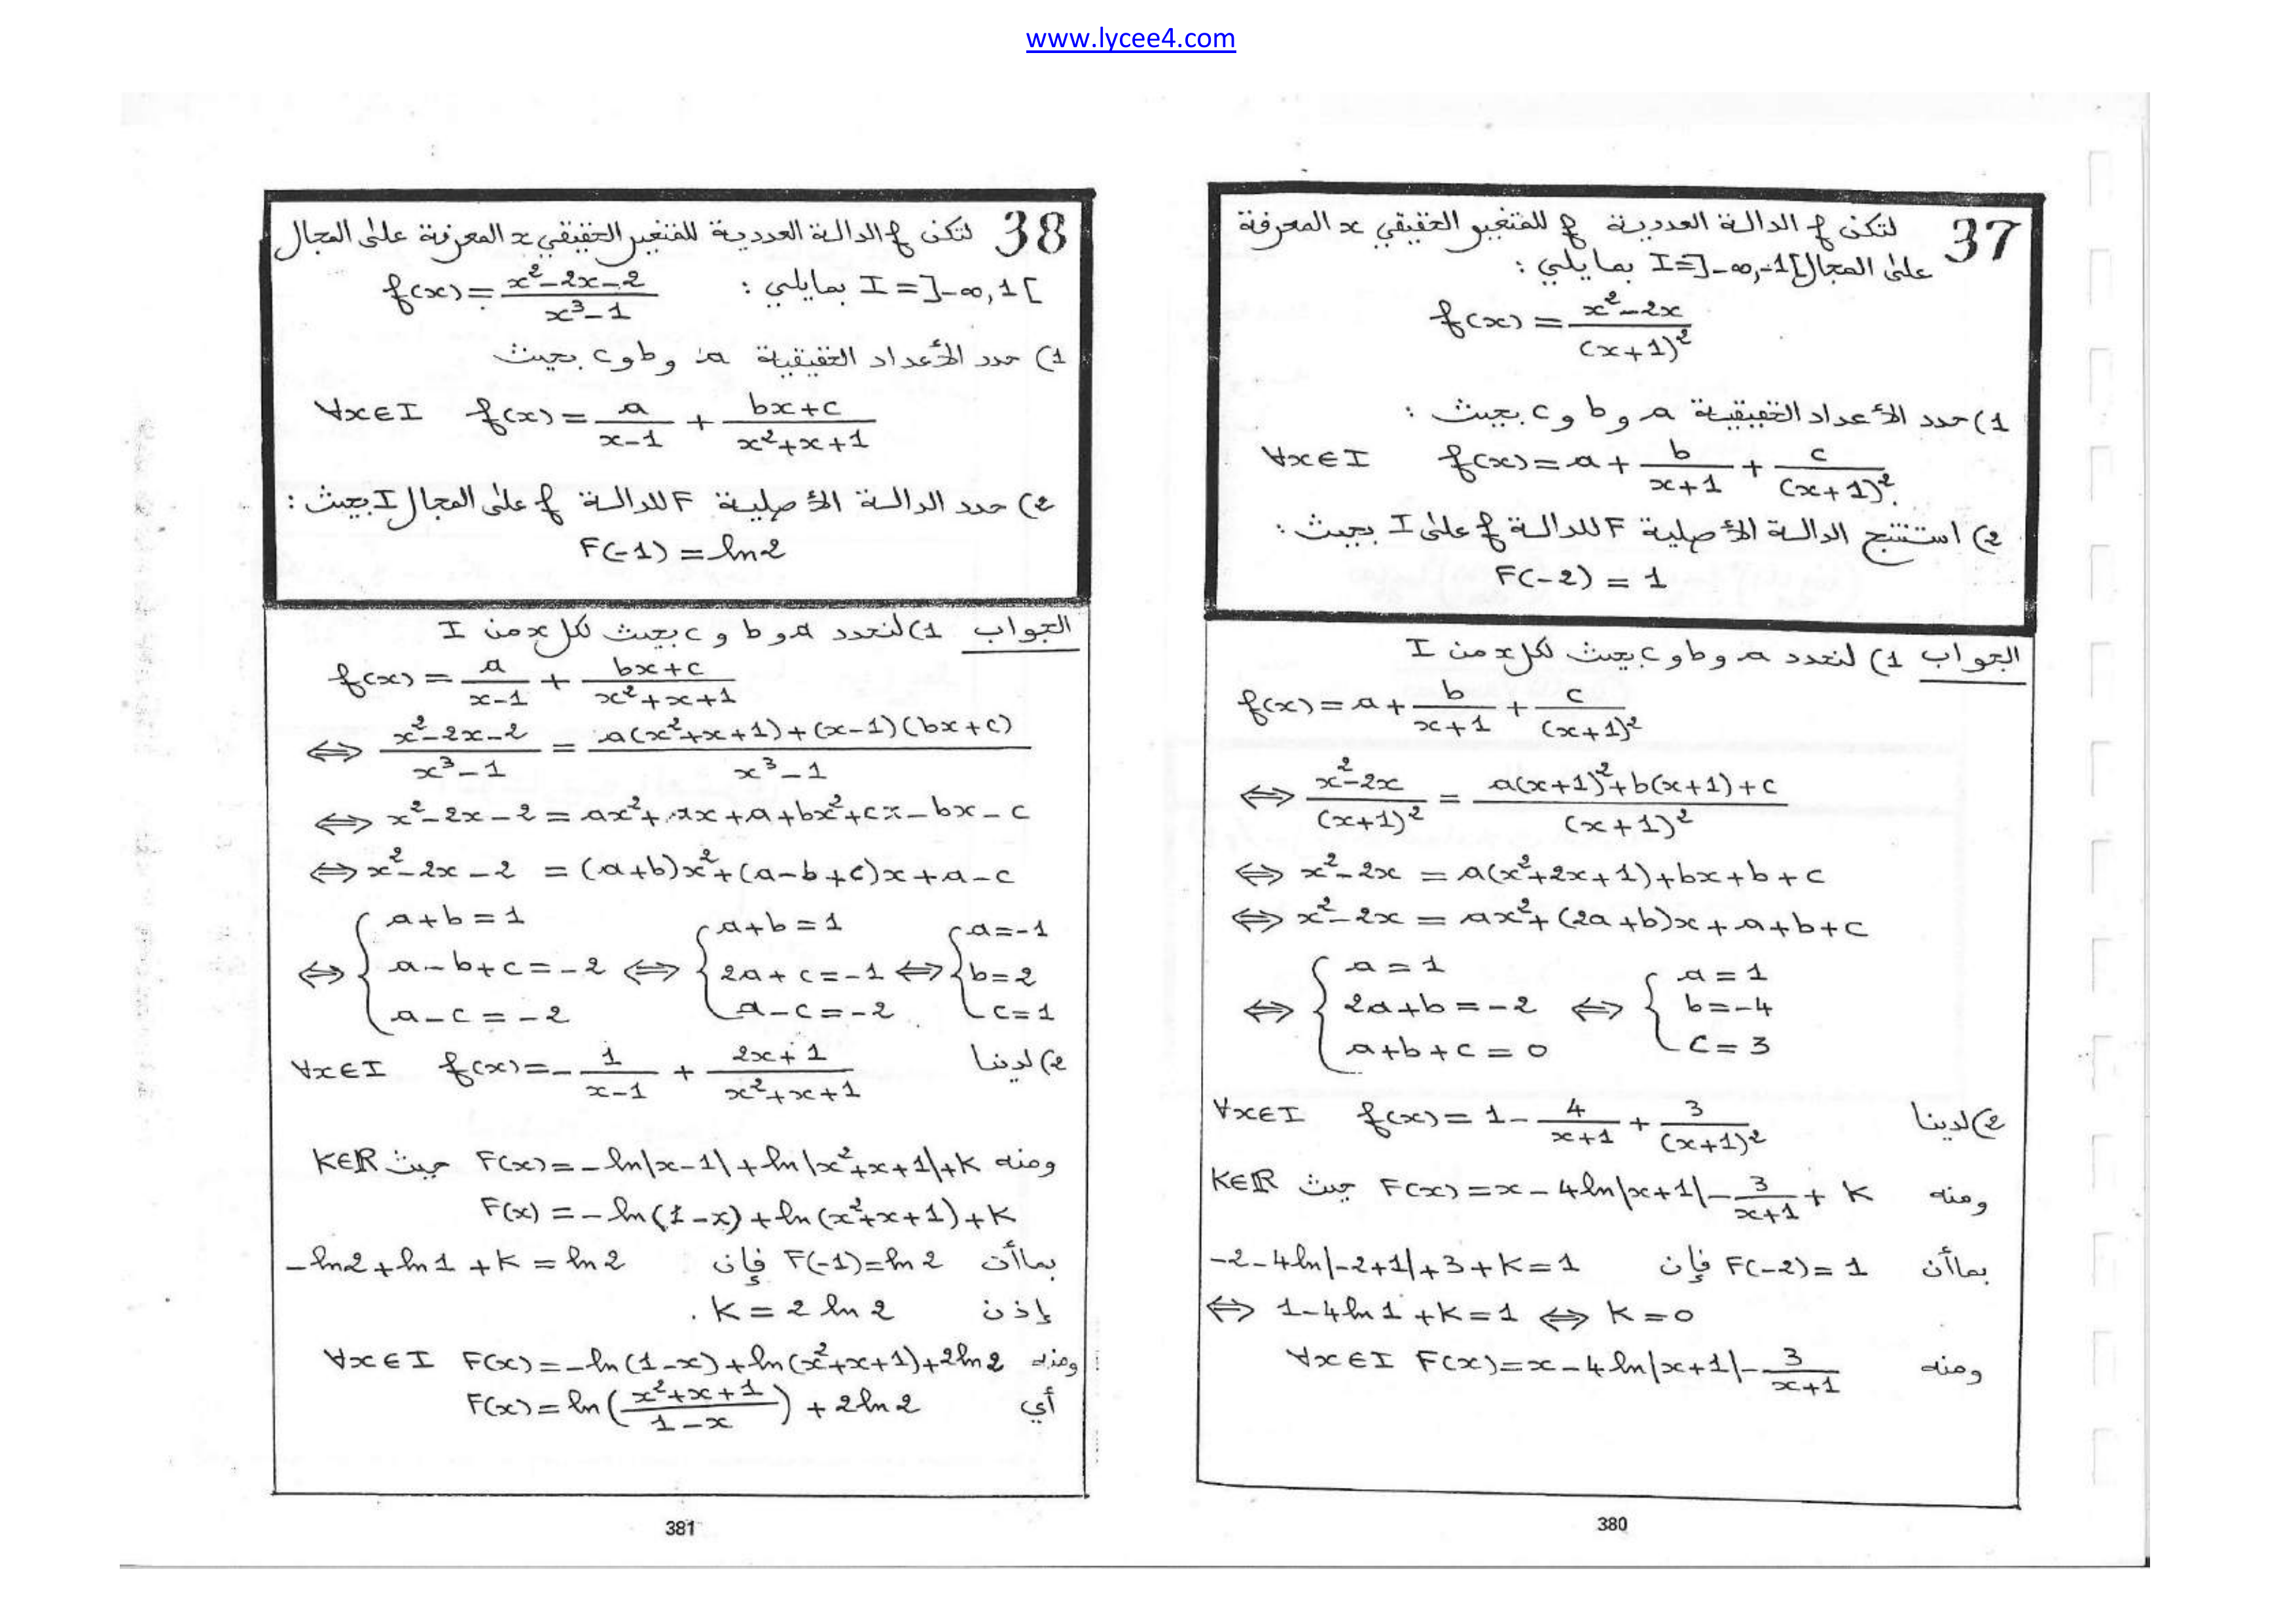 www.lycee4.com
37 لتكن f الدالة العددية f للمتغير الحقيقي x المعرفة
على المجال I=]-∞,-1[ بمايلي :
f(x) = \frac{x²-2x}{(x+1)²}
1) حدد الأعداد الحقيقية a و b و c بحيث :
∀x∈I f(x) = a + \frac{b}{x+1} + \frac{c}{(x+1)²}
2) استنتج الدالة الأصلية F للدالة f على I بحيث :
F(-2) = 1
الجواب 1) لنحدد a و b و c بحيث لكل x من I
f(x) = a + \frac{b}{x+1} + \frac{c}{(x+1)²}
⇔ \frac{x²-2x}{(x+1)²} = \frac{a(x+1)²+b(x+1)+c}{(x+1)²}
⇔ x²-2x = a(x²+2x+1)+bx+b+c
⇔ x²-2x = ax²+(2a+b)x+a+b+c
⇔ { a = 1 ; 2a+b = -2 ; a+b+c = 0 ⇔ { a = 1 ; b = -4 ; c = 3
2) لدينا ∀x∈I f(x) = 1 - \frac{4}{x+1} + \frac{3}{(x+1)²}
ومنه F(x) = x - 4ln|x+1| - \frac{3}{x+1} + K حيث K∈ℝ
بماأن F(-2) = 1 فإن -2-4ln|-2+1|+3+K = 1
⇔ 1-4ln1+K = 1 ⇔ K = 0
ومنه ∀x∈I F(x) = x - 4ln|x+1| - \frac{3}{x+1}
380
38 لتكن f الدالة العددية للمتغير الحقيقي x المعرفة على المجال
I = ]-∞,1[ بمايلي : f(x) = \frac{x²-2x-2}{x³-1}
1) حدد الأعداد الحقيقية a و b و c بحيث
∀x∈I f(x) = \frac{a}{x-1} + \frac{bx+c}{x²+x+1}
2) حدد الدالة الأصلية F للدالة f على المجال I بحيث :
F(-1) = ln2
الجواب 1) لنحدد a و b و c بحيث لكل x من I
f(x) = \frac{a}{x-1} + \frac{bx+c}{x²+x+1}
⇔ \frac{x²-2x-2}{x³-1} = \frac{a(x²+x+1)+(x-1)(bx+c)}{x³-1}
⇔ x²-2x-2 = ax²+ax+a+bx²+cx-bx-c
⇔ x²-2x-2 = (a+b)x²+(a-b+c)x+a-c
⇔ { a+b = 1 ; a-b+c = -2 ; a-c = -2 ⇔ { a+b = 1 ; 2a+c = -1 ; a-c = -2 ⇔ { a = -1 ; b = 2 ; c = 1
2) لدينا ∀x∈I f(x) = -\frac{1}{x-1} + \frac{2x+1}{x²+x+1}
ومنه F(x) = -ln|x-1|+ln|x²+x+1|+K حيث K∈ℝ
F(x) = -ln(1-x)+ln(x²+x+1)+K
بماأن F(-1)=ln2 فإن -ln2+ln1+K = ln2
إذن K = 2ln2 .
ومنه ∀x∈I F(x) = -ln(1-x)+ln(x²+x+1)+2ln2
أي F(x) = ln(\frac{x²+x+1}{1-x}) + 2ln2
381